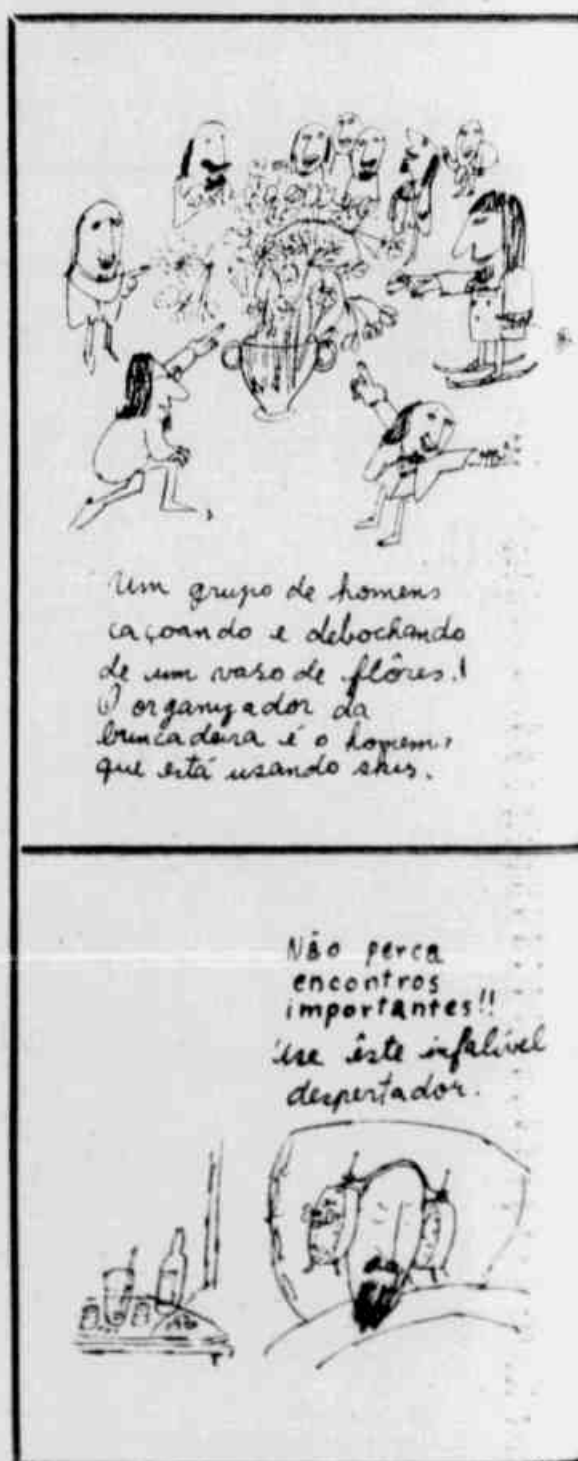 Um grupo de homens
caçoando e debochando
de um vaso de flôres.!
O organizador da
brincadeira é o homem,
que está usando skis.
Não perca
encontros
importantes!!
Use êste infalível
despertador.